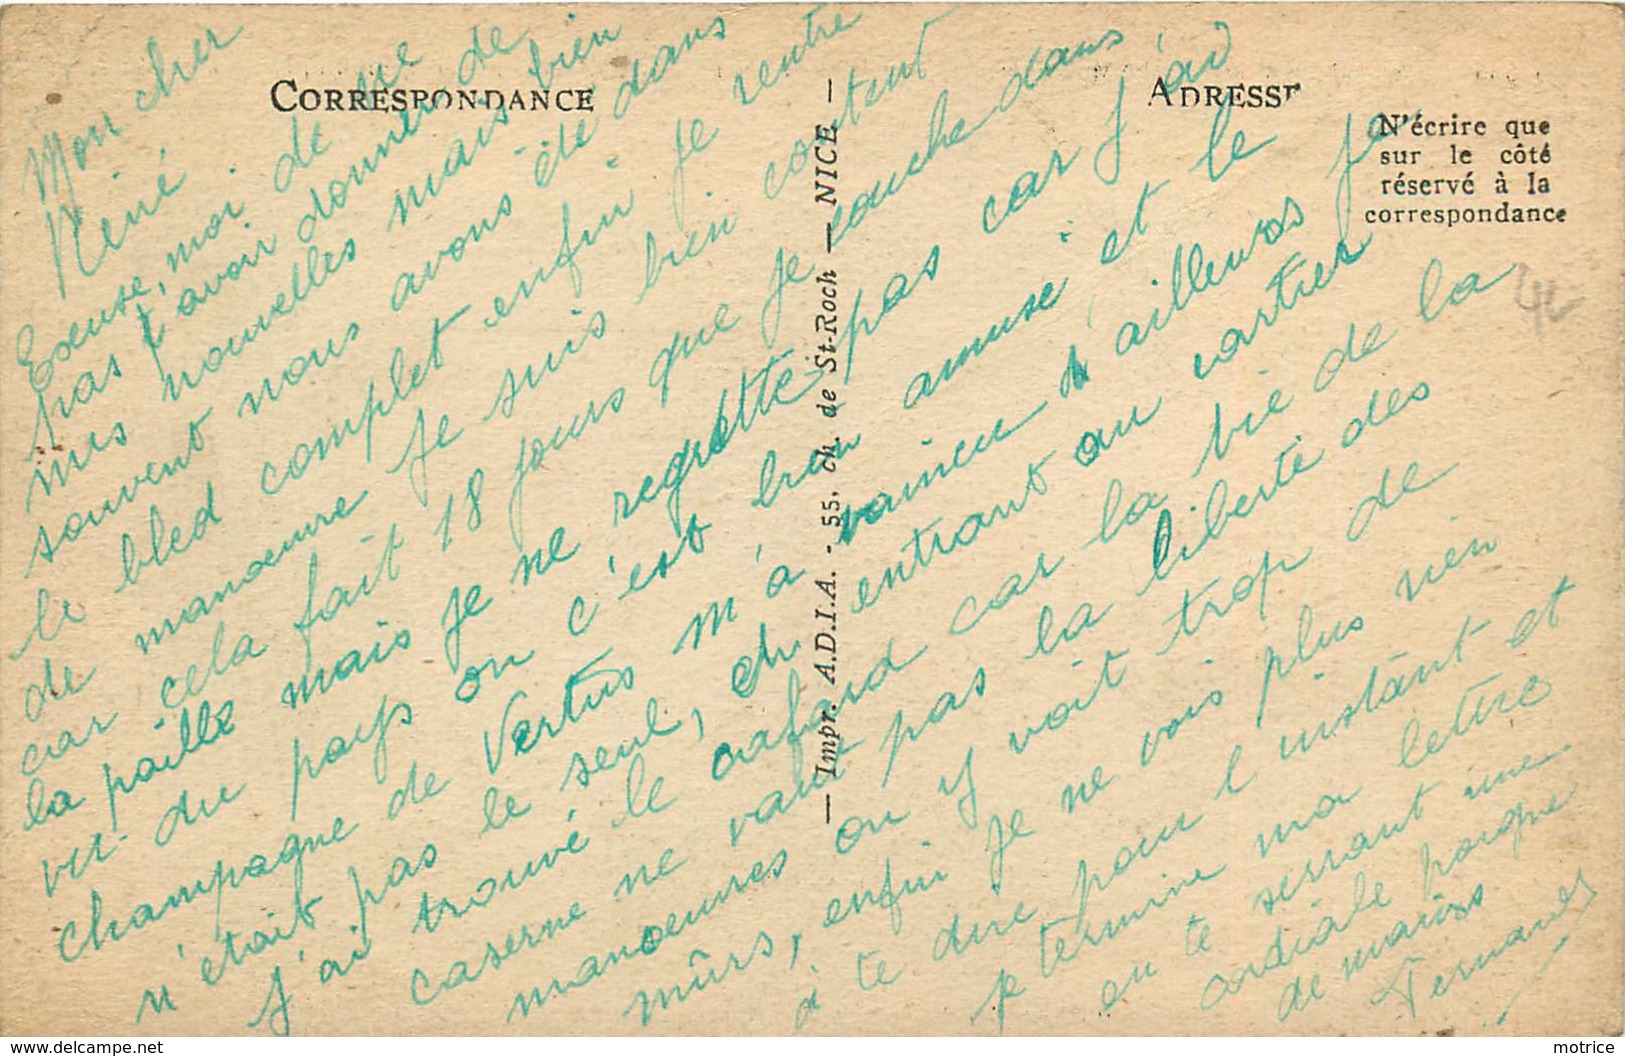 CORRESPONDANCE
ADRESSE
N'écrire que
sur le côté
réservé à la
correspondance
— Impr. A.D.I.A. - 55, ch. de St-Roch — NICE —
4L
Mon cher
Réné
Excuse, moi de ne
pas t'avoir donner de
mes nouvelles mais bien
souvent nous avons été dans
le bled complet enfin je rentre
de manœuvre je suis bien content
car cela fait 18 jours que je couche dans
la paille mais je ne regrette pas car j'ai
vu du pays on c'est bien amusé et le
champagne de Vertus m'à vaincu d'ailleurs je
n'était pas le seul, en entrant au cartier
j'ai trouvé le cafard car la vie de la
caserne ne vaut pas la liberté des
manoeuvres on y voit trop de
mûrs, enfin je ne vois plus rien
à te dire pour l'instant et
je termine ma lettre
en te serrant une
cordiale poigne
de mains
Fernand
motrice